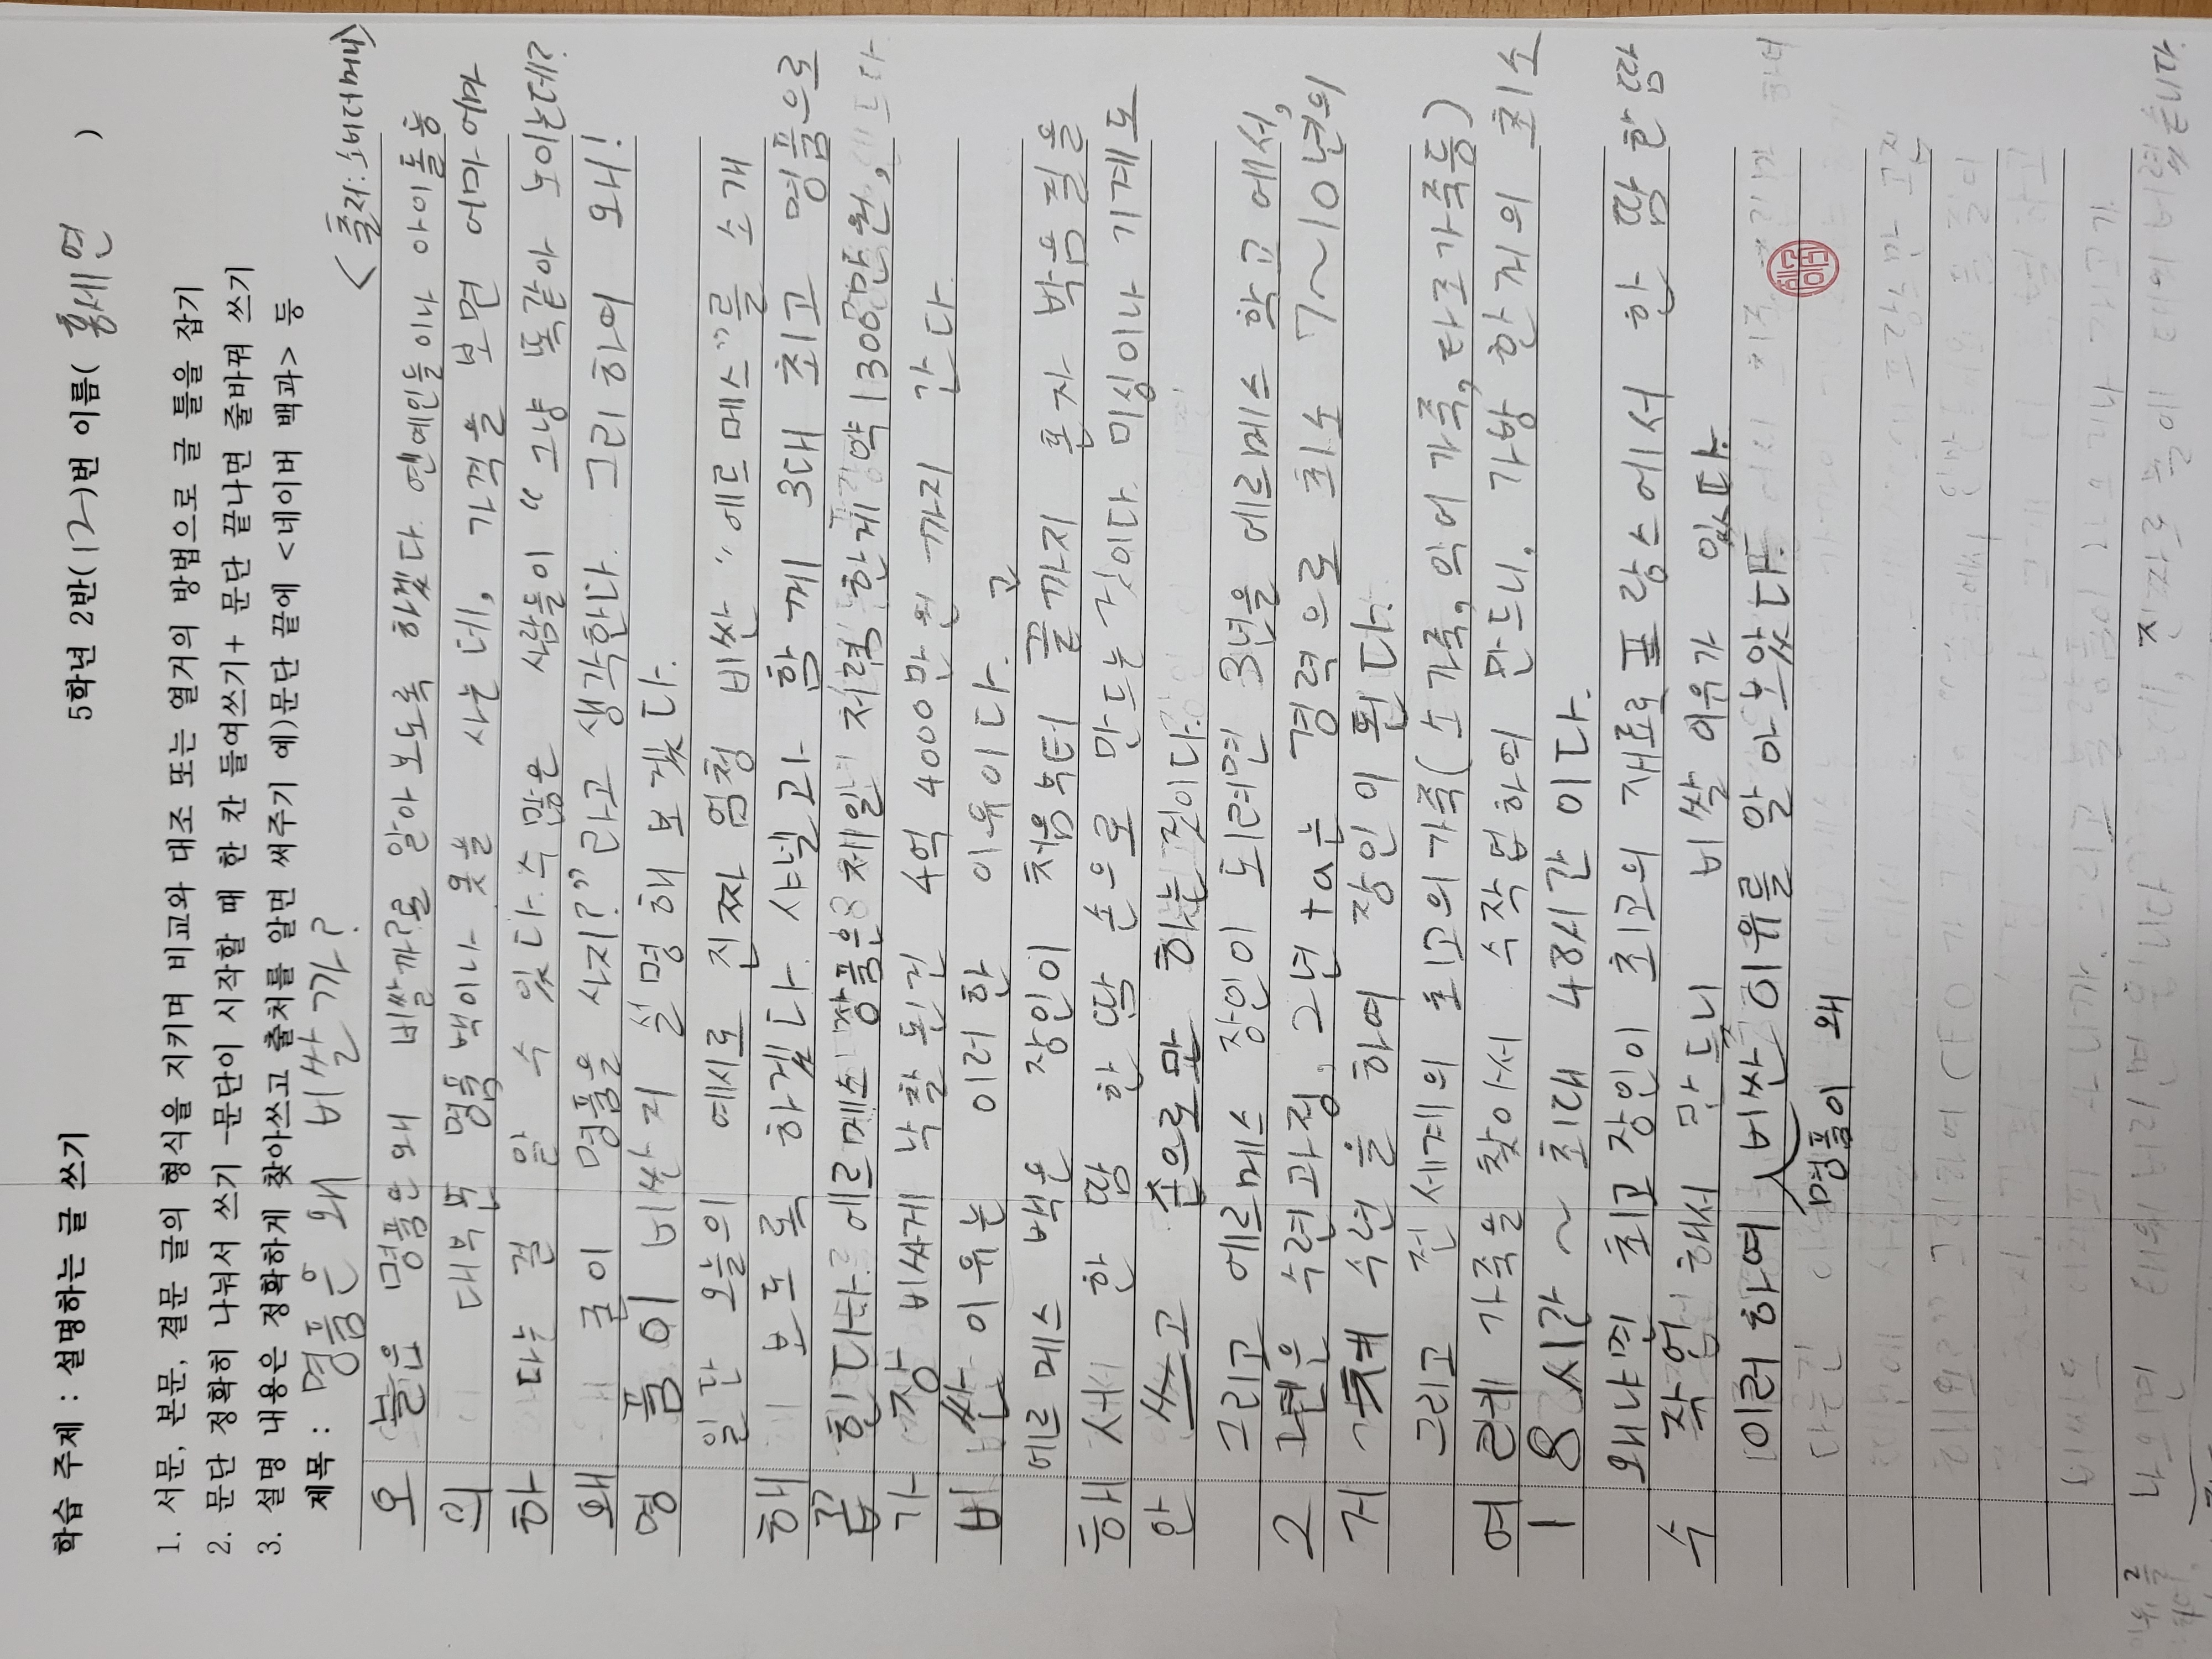 학습 주제 : 설명하는 글 쓰기 5학년 2반(12)번 이름( 홍세연 )
1. 서문, 본문, 결문 글의 형식을 지키며 비교와 대조 또는 열거의 방법으로 글 틀을 잡기
2. 문단 정확히 나눠서 쓰기 -문단이 시작할 때 한 칸 들여쓰기+ 문단 끝나면 줄바꿔 쓰기
3. 설명 내용은 정확하게 찾아쓰고 출처를 알면 써주기 예)문단 끝에 <네이버 백과> 등
제목 : 명품은 왜 비쌀까?
<출처: 소비더머니>
오늘은 명품은 왜 비쌀까?로 알아보도록 하겠다. 연예인들이나 아이돌등
의 대부분 명품백이나 옷을 사는데, 가격을 보면 어마어마
하다는 걸 알 수 있다. 수많은 사람들이 “그냥 똑같아 보이는데?
왜 굳이 명품을 사지?”라고 생각한다. 그리하여 왜!
명품이 비싼지 설명해보겠다.
일단 오늘의 예시로 진짜 엄청 비싼 “에르메스”를 소개
해 보도록 하겠다. 샤넬과 함께 3대 최고 명품으로
꼽힌다. 에르메스 명품은 제일 저렴한게 약 1300만원,
가장 비싸게 낙찰된건 4억 4000만원 까지 간다.
비싼 이유는 이러한 이유이다.
에르메스 백은 장인이 처음부터 끝까지 혼자 박음질을
해서 한 땀 한 땀 손으로 만드는 것이다. 미싱이나 기계도
안 쓰고 손으로만 하는 것이다.
그리고 에르메스 장인이 되려면 3년을 에르메스 학교에서,
2년은 수련과정, 2년+a는 경력으로 최소 7~10년의
거쳐 수련을 하여 장인이 된다.
그리고 전 세계의 최고의 가죽(소가죽, 악어 가죽, 타조가죽등)
여러 가죽을 찾아서 수작업하여 만드니, 가방 한개의 최소
18시간 ~ 최대 48시간 이다.
왜냐면 최고 장인이 최고의 재료로 프랑스에서 한 땀 한땀
수작업 해서 만드니 비쌀 이유가 있다.
이러하여 명품이 왜 비싼 이유를 알아보았다.